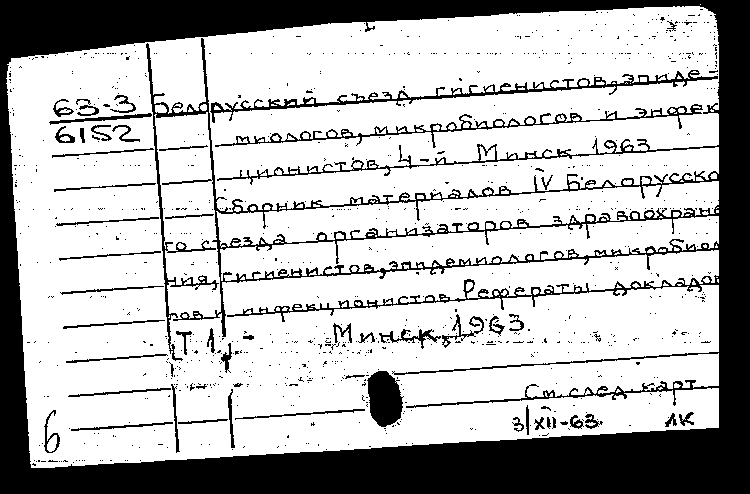 63-3 Белорусский съезд гигиенистов, эпиде-
6152 миологов, микробиологов и энфек
ционистов, 4-й. Минск 1963
Сборник материалов IV Белорусско
го съезда организаторов здравоохране
ния, гигиенистов, эпидемиологов, микробиол
гов и инфекционистов. Рефераты докладов
Т. 1. - Минск, 1963.
См. след. карт.
3/XII-63. 1К
6